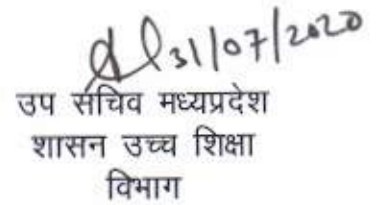 31/07/2020
उप सचिव मध्यप्रदेश
शासन उच्च शिक्षा
विभाग